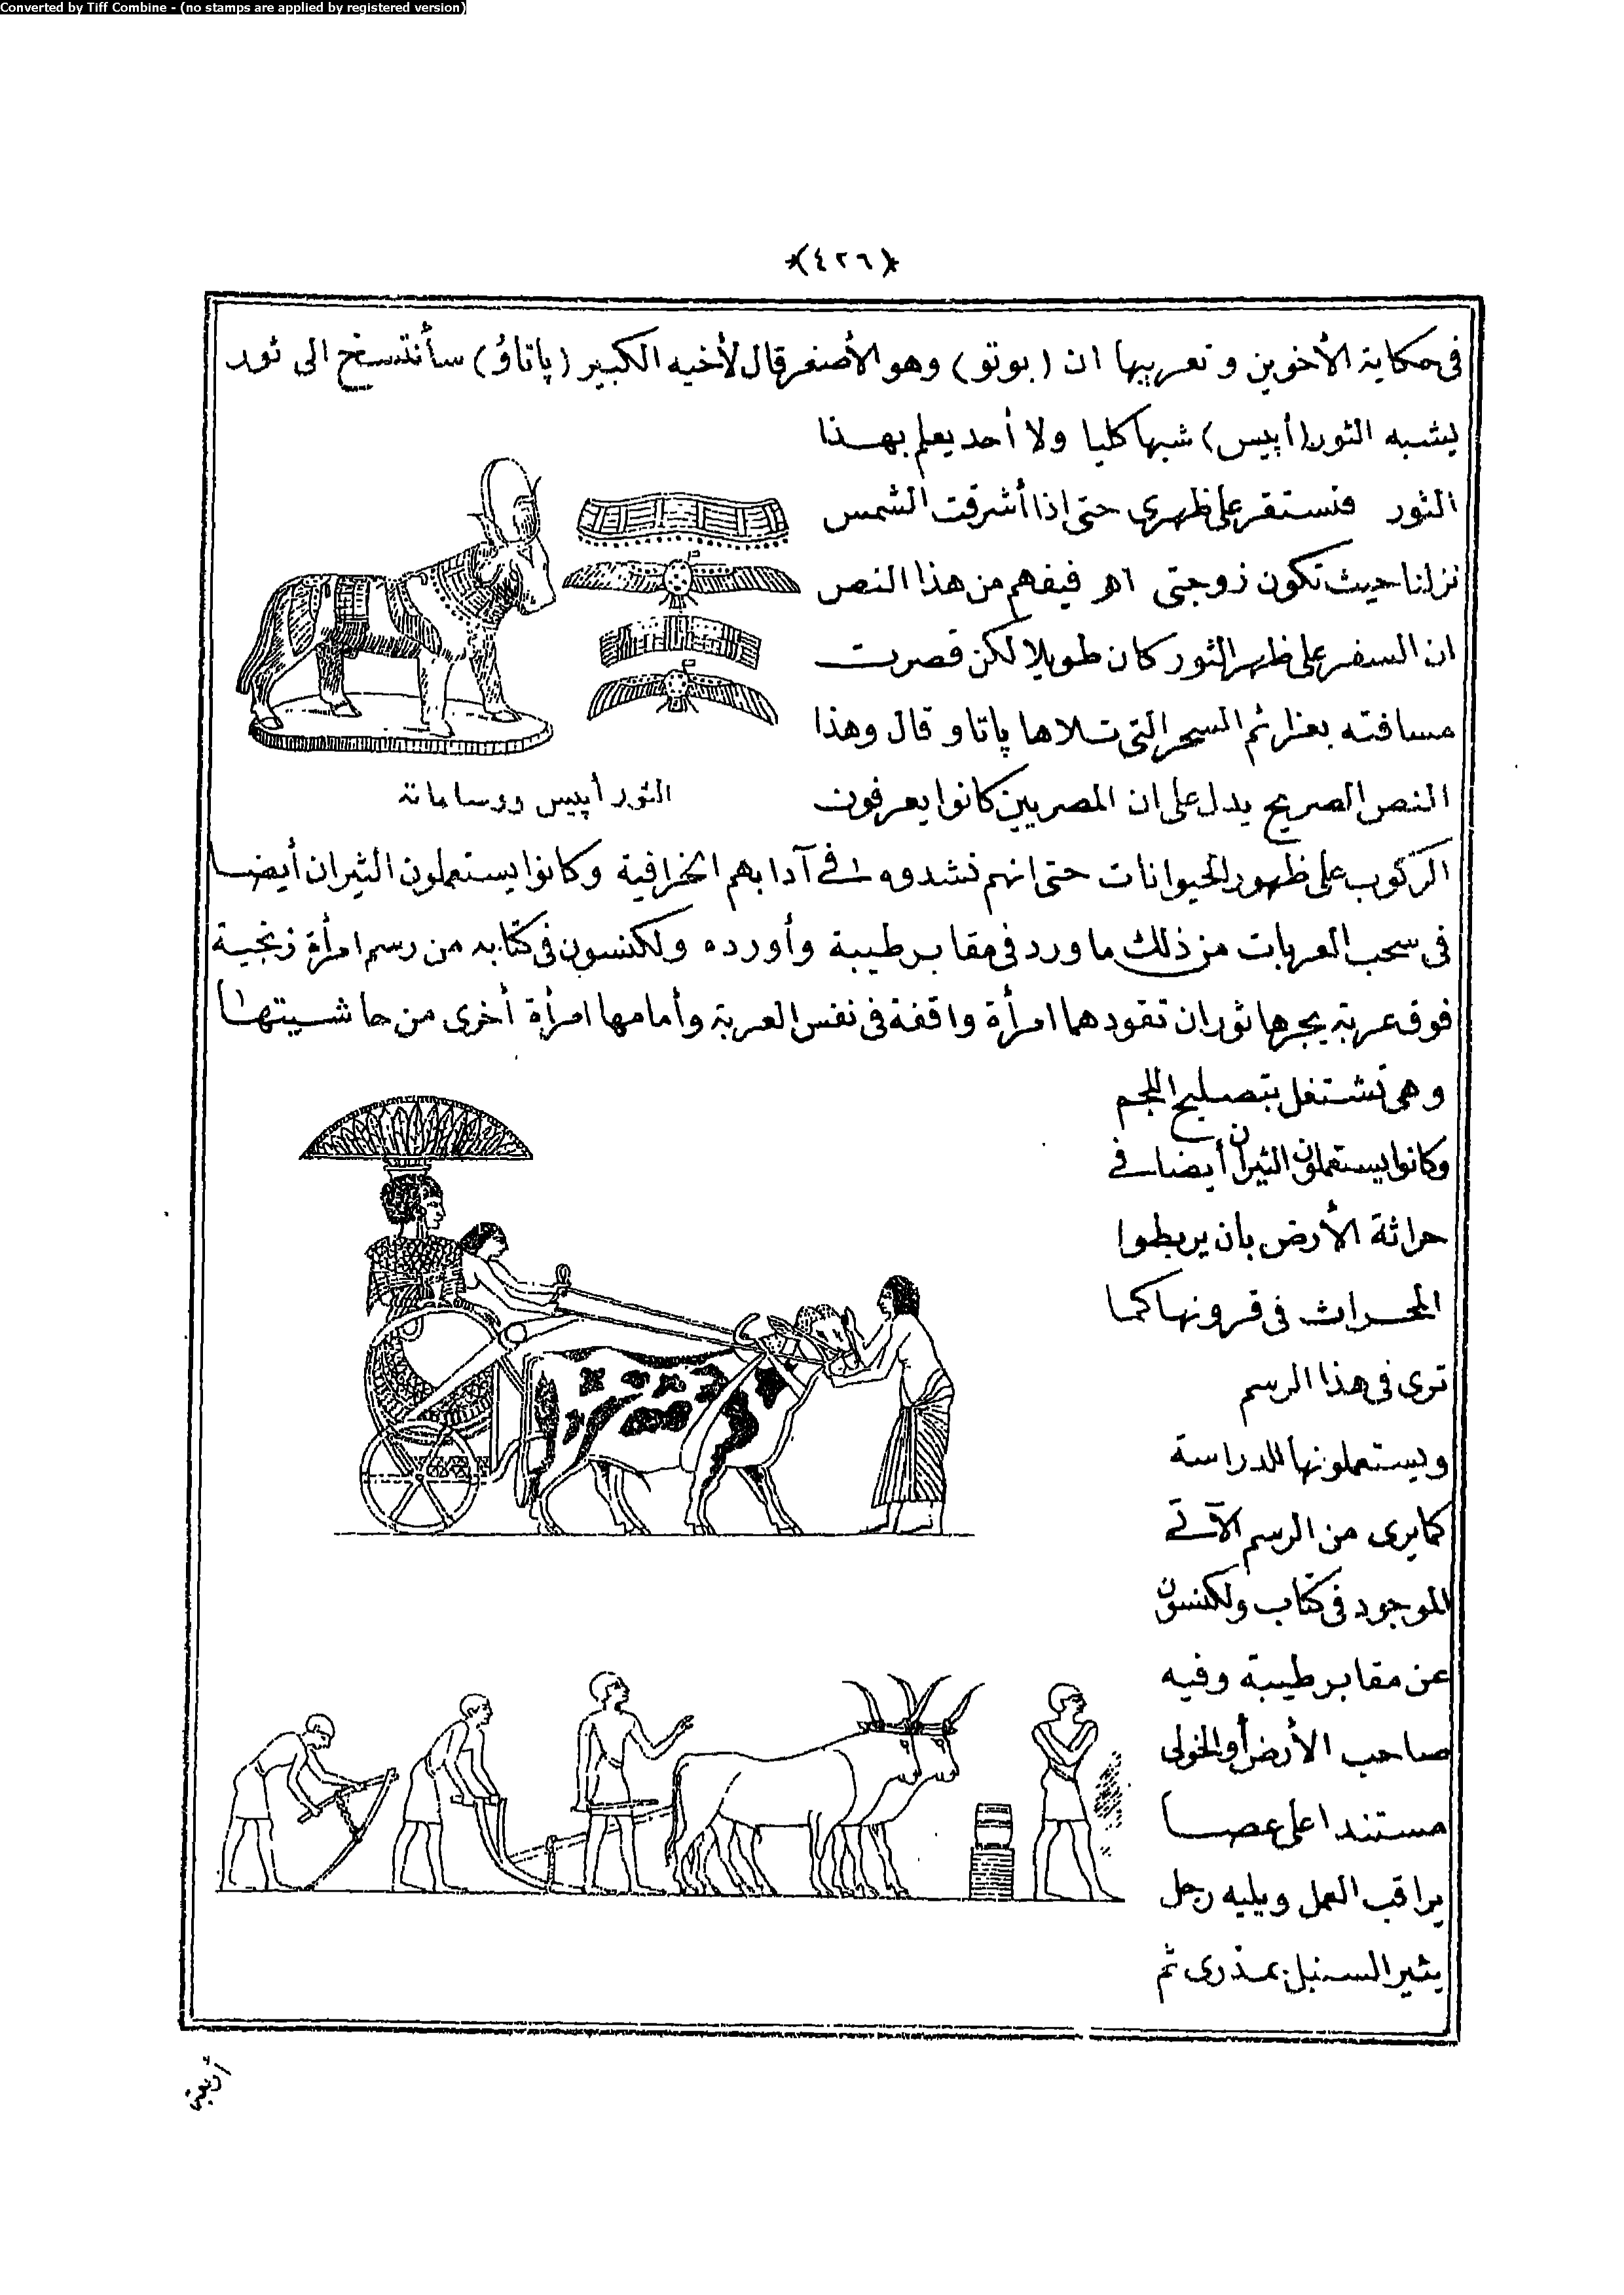 Converted by Tiff Combine - (no stamps are applied by registered version)
*(٤٢٦)*
فى حكاية الأخوين وتعريبها ان (بوتو) وهو الأصغر قال لأخيه الكبير (پاتاؤ) سأنتسخ الى ثور
يشبه الثور (أپيس) شبها كليا ولا أحد يعلم بهذا
الثور فتستقر على ظهرى حتى إذا أشرقت الشمس
نزلنا حيث تكون زوجتى اه فيفهم من هذا النص
ان السفر على ظهر الثور كان طويلا لكن قصرت
مسافته بعزائم السحر التى تلاها پاتاو قال وهذا
النص الصريح يدل على ان المصريين كانوا يعرفون
الثور أپيس ووساماته
الركوب على ظهور الحيوانات حتى انهم نشدوه فى آدابهم الخرافية وكانوا يستعملون الثيران أيضا
فى سحب العربات من ذلك ما ورد فى مقابر طيبة وأورده ولكنسون فى كتابه من رسم امرأة زنجية
فوق عربة يجرها ثوران تقودهما امرأة واقفة فى نفس العربة وأمامها امرأة أخرى من حاشيتها
وهى تشتغل بتصليح اللجم
وكانوا يستعملون الثيران أيضا فى
حراثة الأرض بان يربطوا
المحراث فى قرونها كما
ترى فى هذا الرسم
ويستعملونها للدراسة
كما يرى من الرسم الآتى
الموجود فى كتاب ولكنسون
عن مقابر طيبة وفيه
صاحب الأرض أو الخولى
مستندا على عصا
يراقب العمل ويليه رجل
يثير السنبل بمذرى ثم